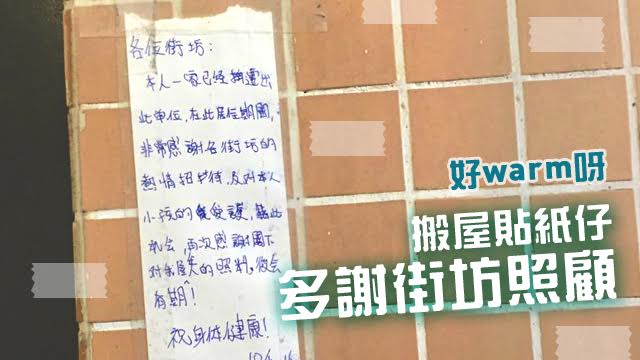 各位街坊:
本人一家已經搬遷出
此單位,在此居住期間,
非常感謝各街坊的
熱情招待,及對本人
小孩的愛護,藉此
机会,再次感謝閣下
对家人的照料,後会
有期!
祝身体健康!
好warm呀
搬屋貼紙仔
多謝街坊照顧